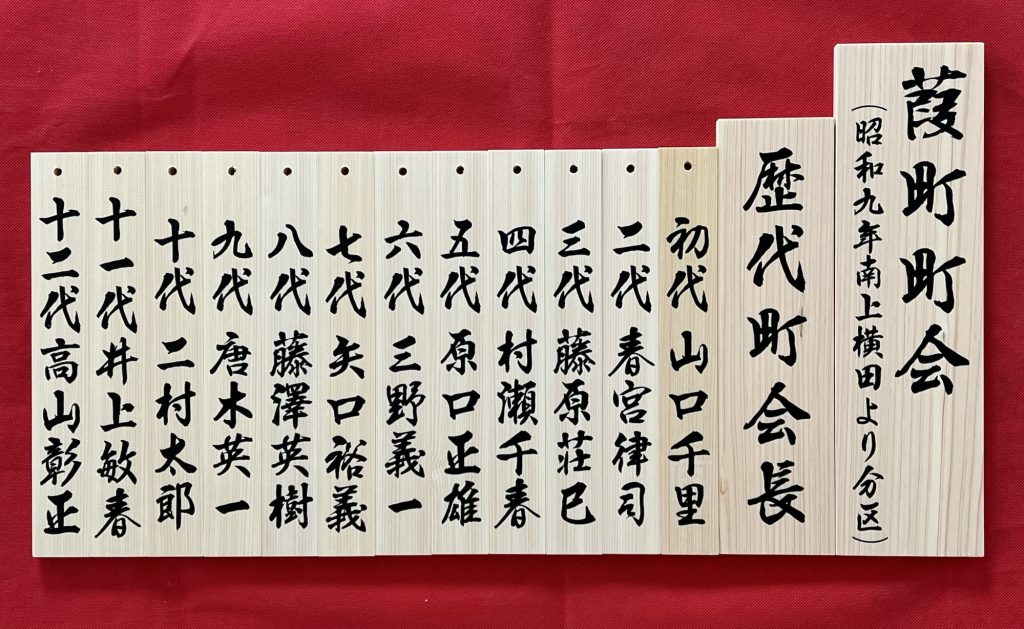 葭町町会
(昭和九年南上横田より分区)
歴代町会長
初代 山口千里
二代 春宮律司
三代 藤原荘巳
四代 村瀬千春
五代 原口正雄
六代 三野義一
七代 矢口裕義
八代 藤澤英樹
九代 唐木英一
十代 二村太郎
十一代 井上敏春
十二代 高山彰正